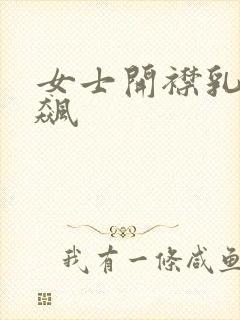 女士開襟乳
飙
我有一條咸鱼